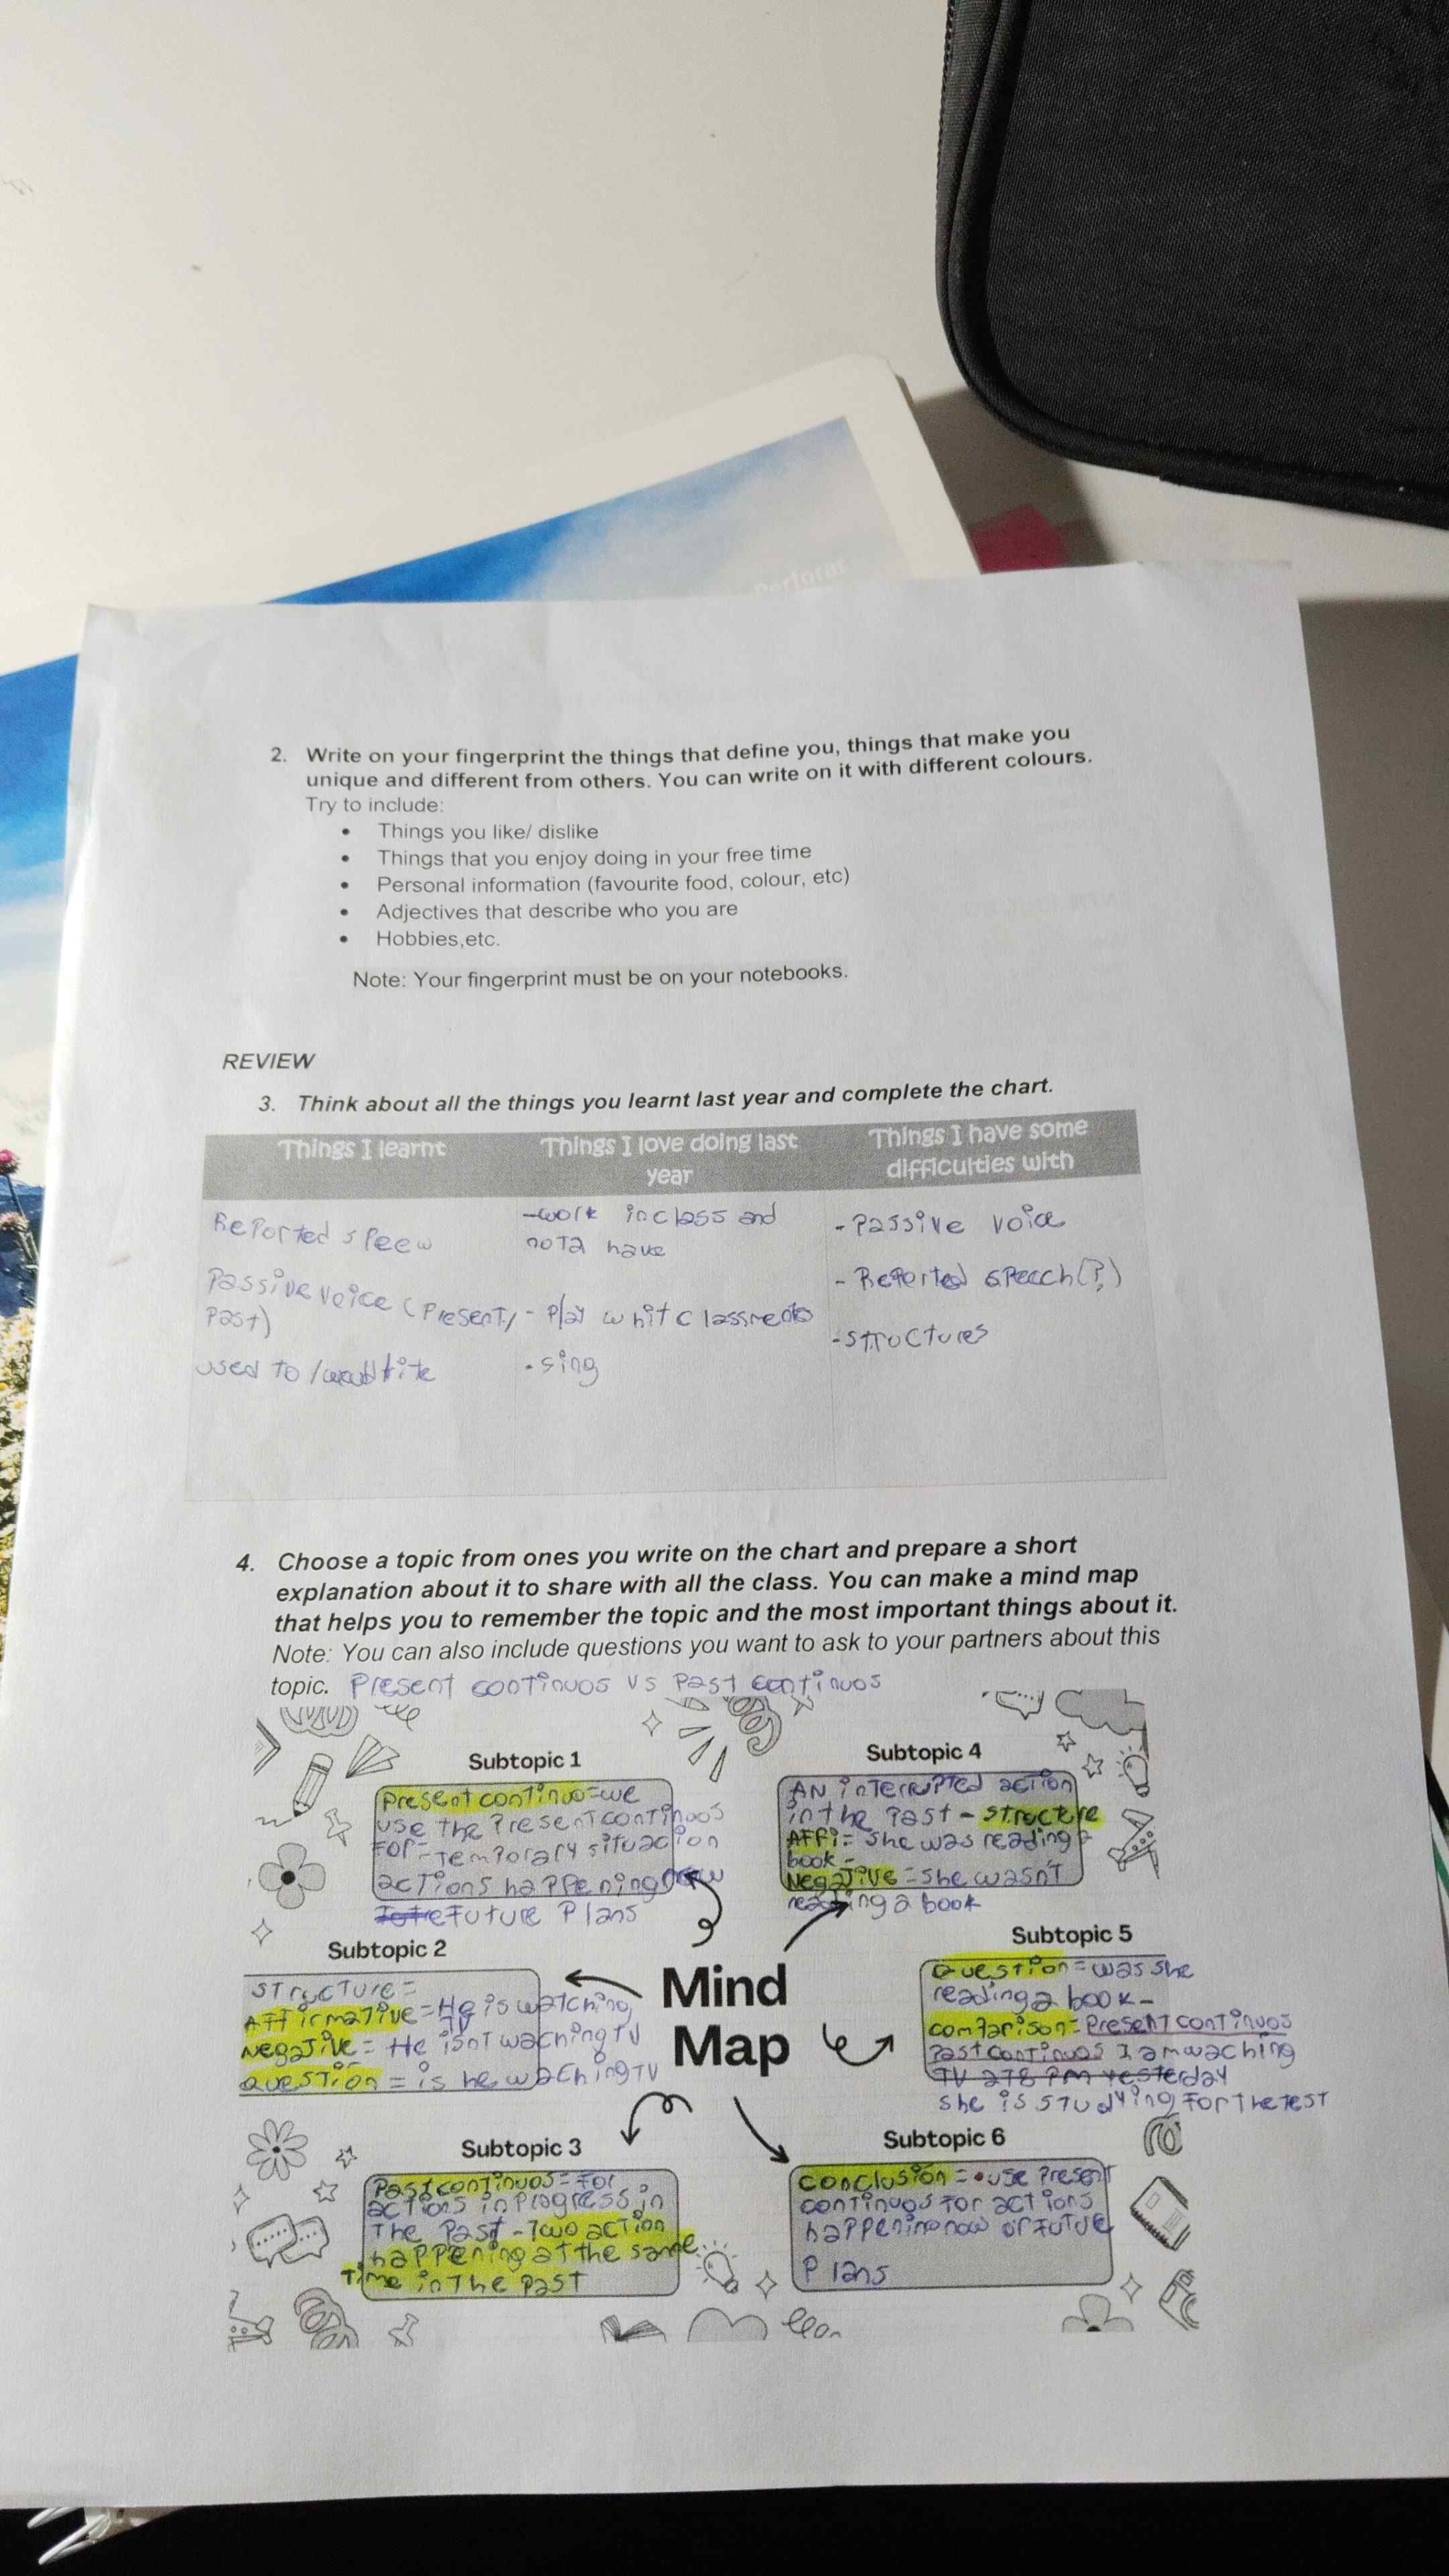 Perforat
2. Write on your fingerprint the things that define you, things that make you
unique and different from others. You can write on it with different colours.
Try to include:
• Things you like/ dislike
• Things that you enjoy doing in your free time
• Personal information (favourite food, colour, etc)
• Adjectives that describe who you are
• Hobbies,etc.
Note: Your fingerprint must be on your notebooks.
REVIEW
3. Think about all the things you learnt last year and complete the chart.
Things I learnt
Reported speew
Passive voice (Present/
Past)
used to /
Things I love doing last
year
-work in class and
not a have
- Play whit classmeats
- sing
Things I have some
difficulties with
- Passive voice
- Reported speech(?)
- structures
4. Choose a topic from ones you write on the chart and prepare a short
explanation about it to share with all the class. You can make a mind map
that helps you to remember the topic and the most important things about it.
Note: You can also include questions you want to ask to your partners about this
topic. Present continuos vs Past continuos
Subtopic 1
Present continuo=we
use the Present continuos
For-Temporary situacion
actions happening now
Future Plans
Subtopic 2
structure=
Affirmative=He is watching
TV
Negative= He isnt waching TV
Question = is he waching TV
Subtopic 3
Past continuos=For
actions in Progress in
The Past -Two action
happening at the same
Time in The Past
Mind
Map
Subtopic 4
An interrupted action
in the Past - structure
Affi= she was reading a
book -
Negative =she wasn't
reading a book
Subtopic 5
Question=was she
reading a book-
comparison=Present continuos
Past continuos I am waching
TV at 8 PM yesterday
she is studying For the test
Subtopic 6
Conclusion = •use Present
continuos For actions
happening now or Future
Plans